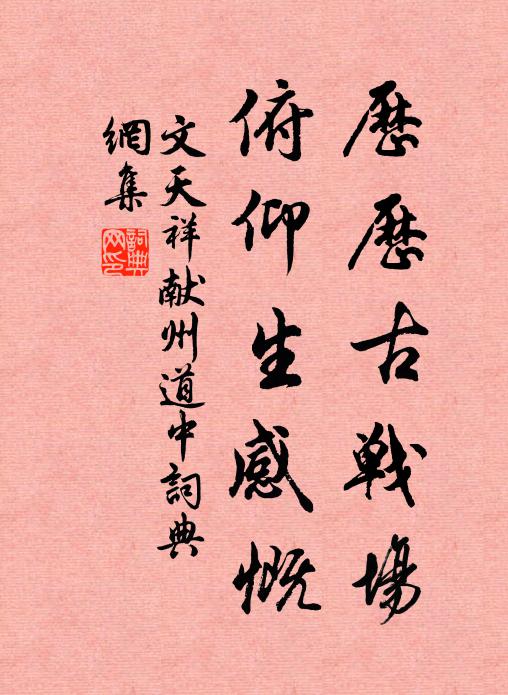 歷歷古戰場
俯仰生感慨
文天祥献州道中詞典
網集
詞典網印